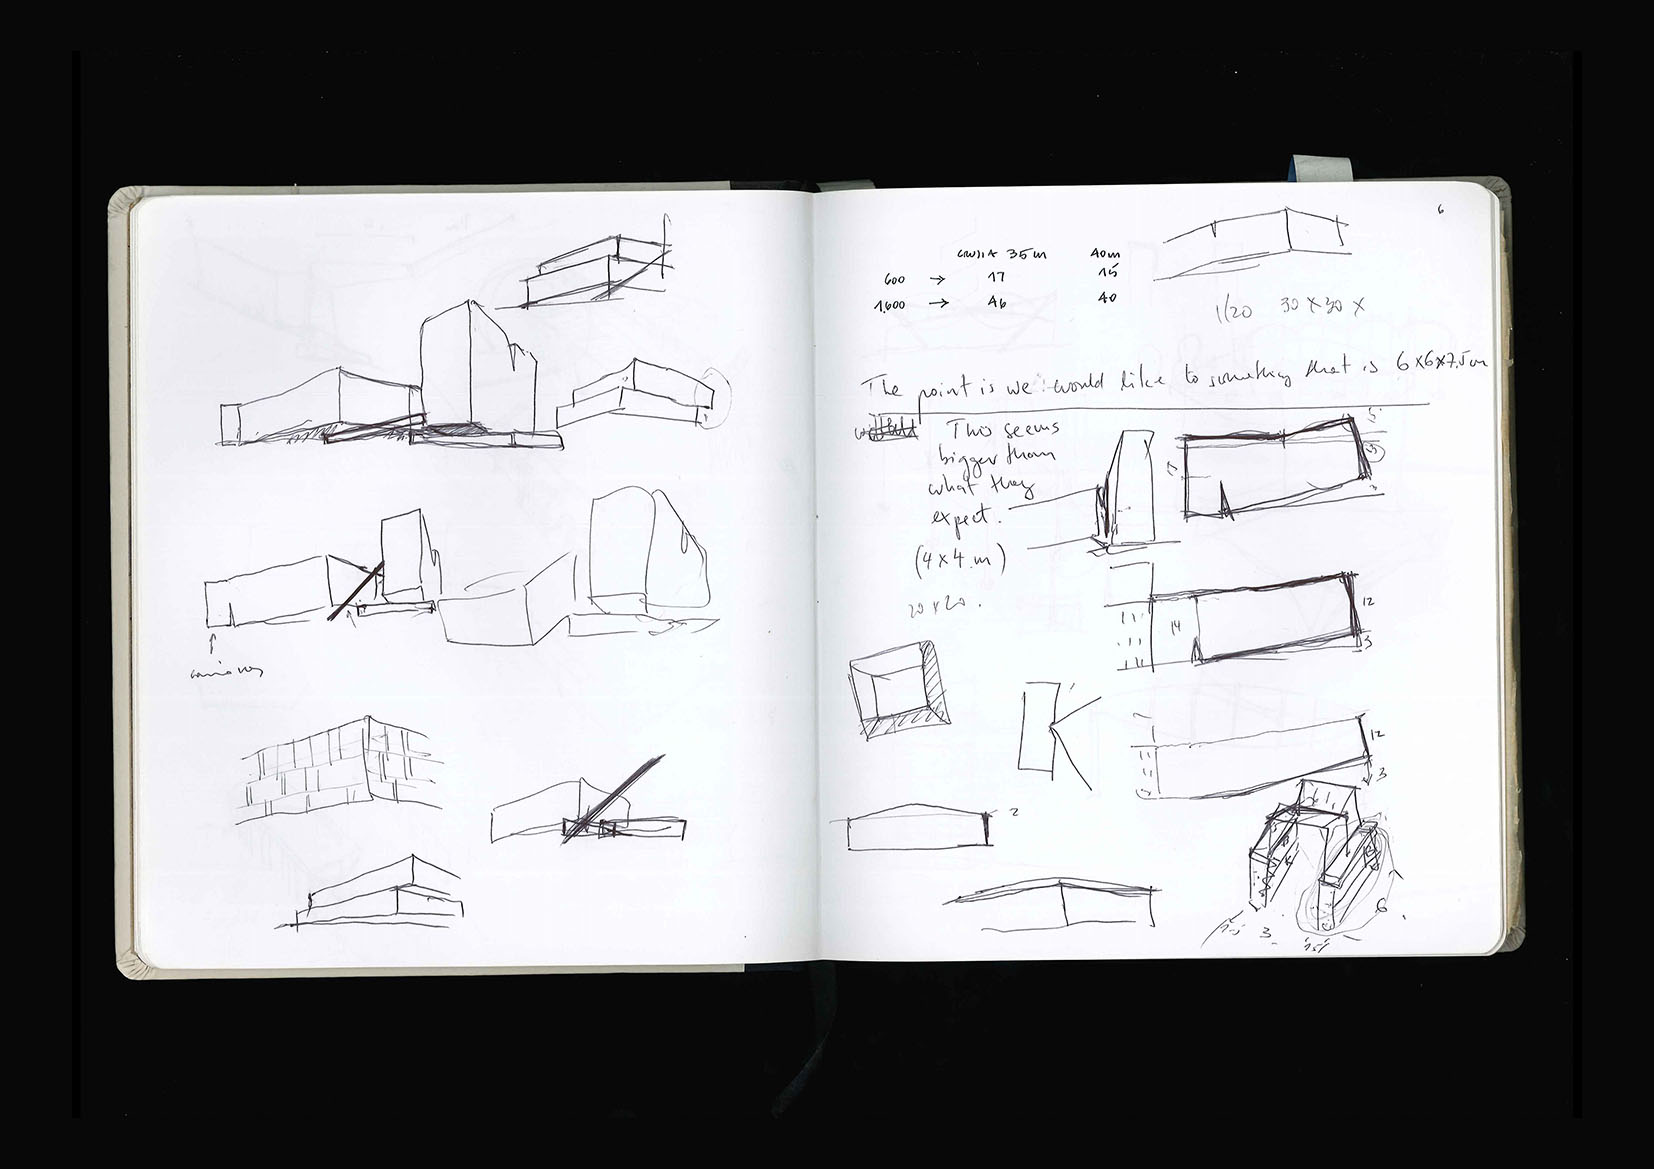 camiones
6
CRUJIA 35m 40m
600 → 17 15
1.600 → 46 40
1/20 30 X 30 X
The point is we would like to something that is 6x6x7,5m
This seems
bigger than
what they
expect.
(4x4 m)
20x20.
12
14
3
12
3
2
6
3